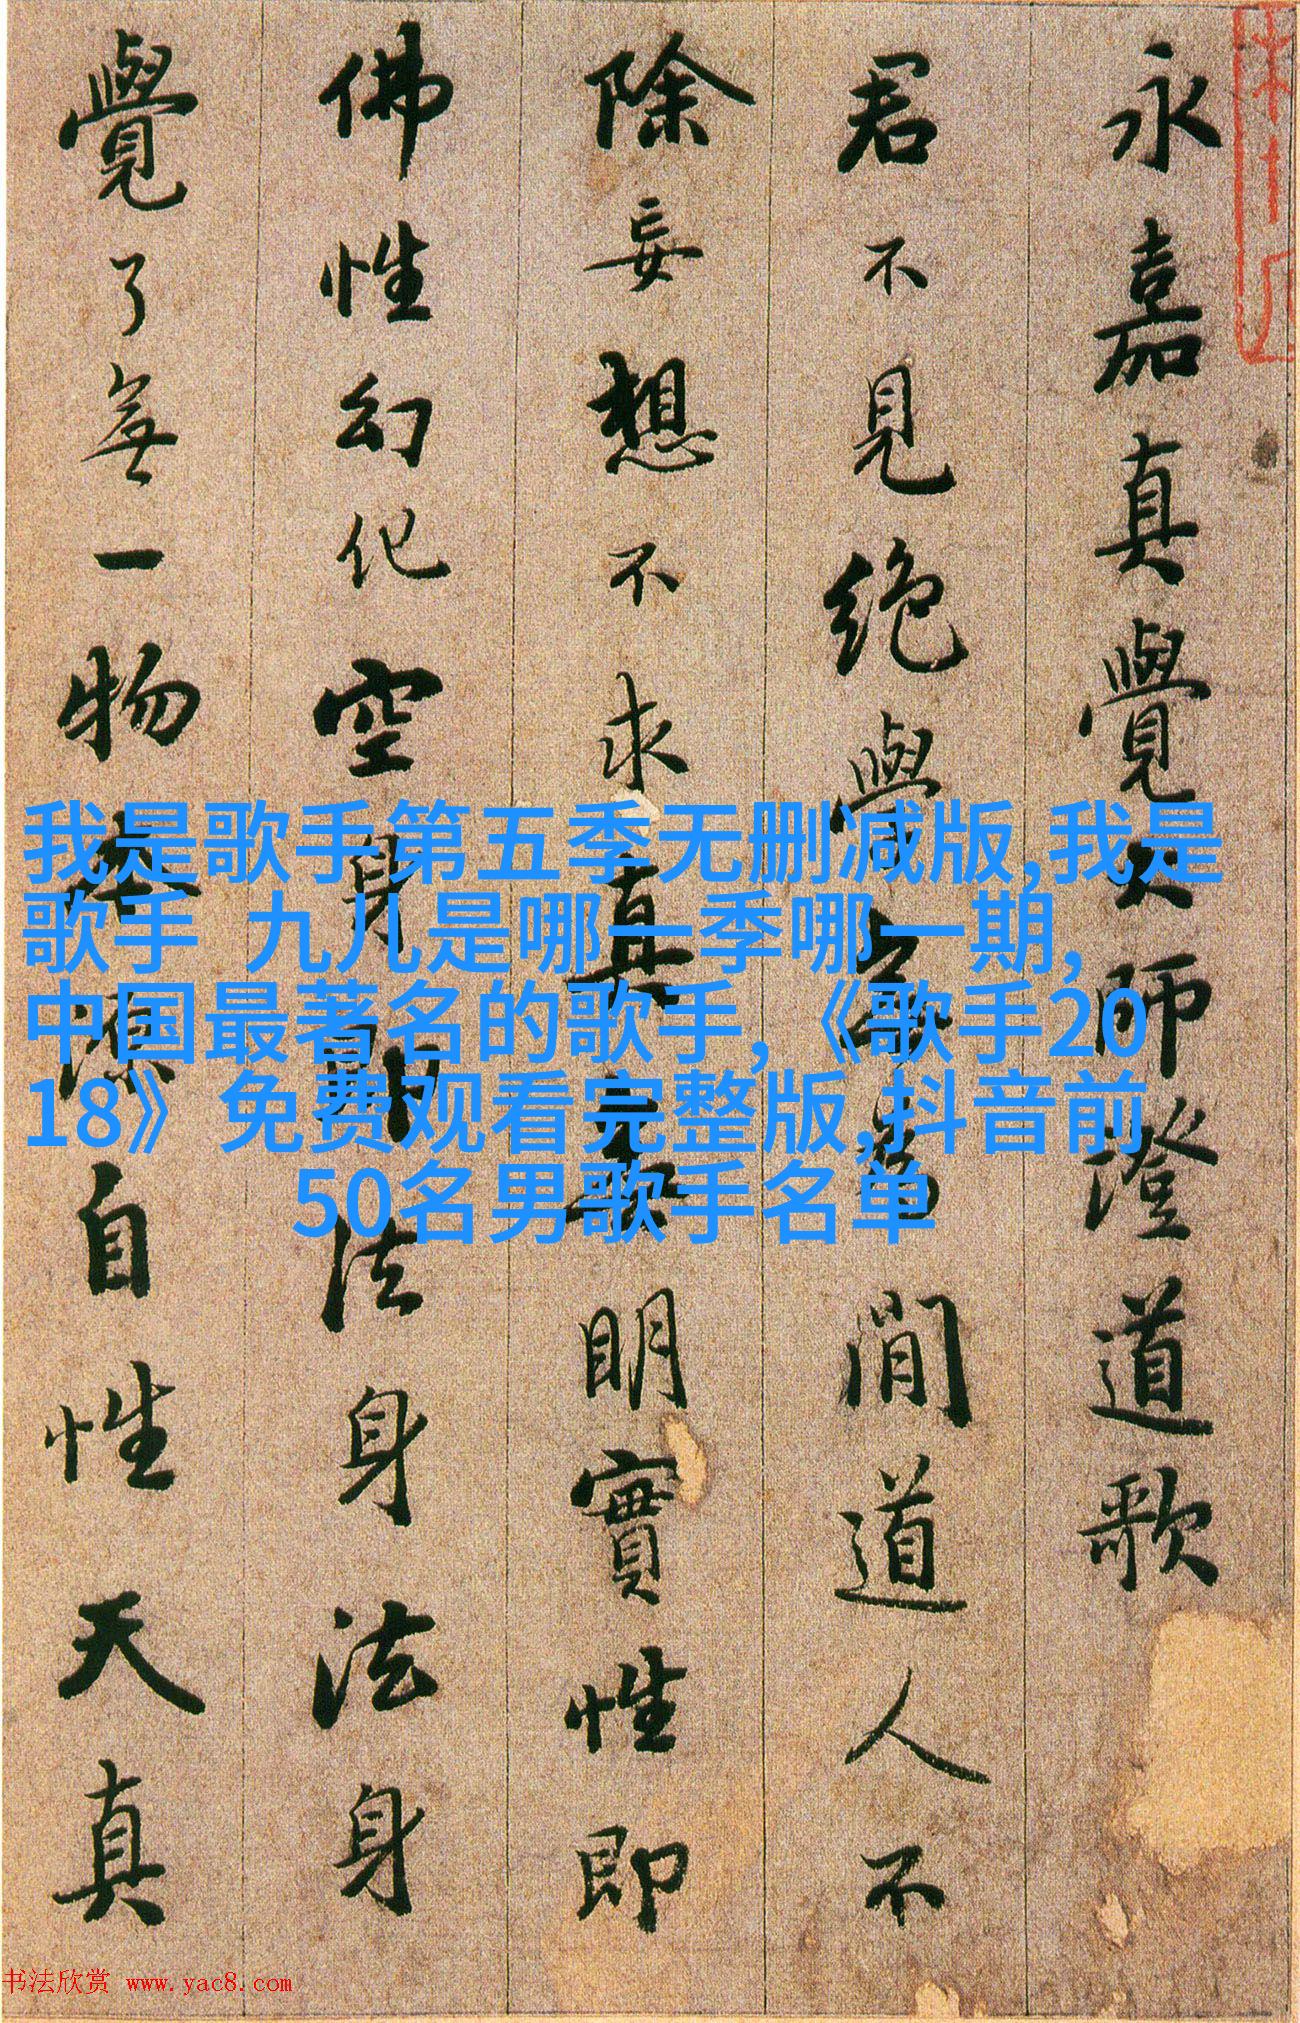 永嘉真覺大師證道歌
君不見絕學無為閒道人不
除妄想不求真無明實性即
佛性幻化空身即法身法身
覺了無一物本源自性天真
我是歌手第五季无删减版,我是
歌手 九儿是哪一季哪一期,
中国最著名的歌手,《歌手20
18》免费观看完整版,抖音前
50名男歌手名单
书法欣赏 www.yac8.com